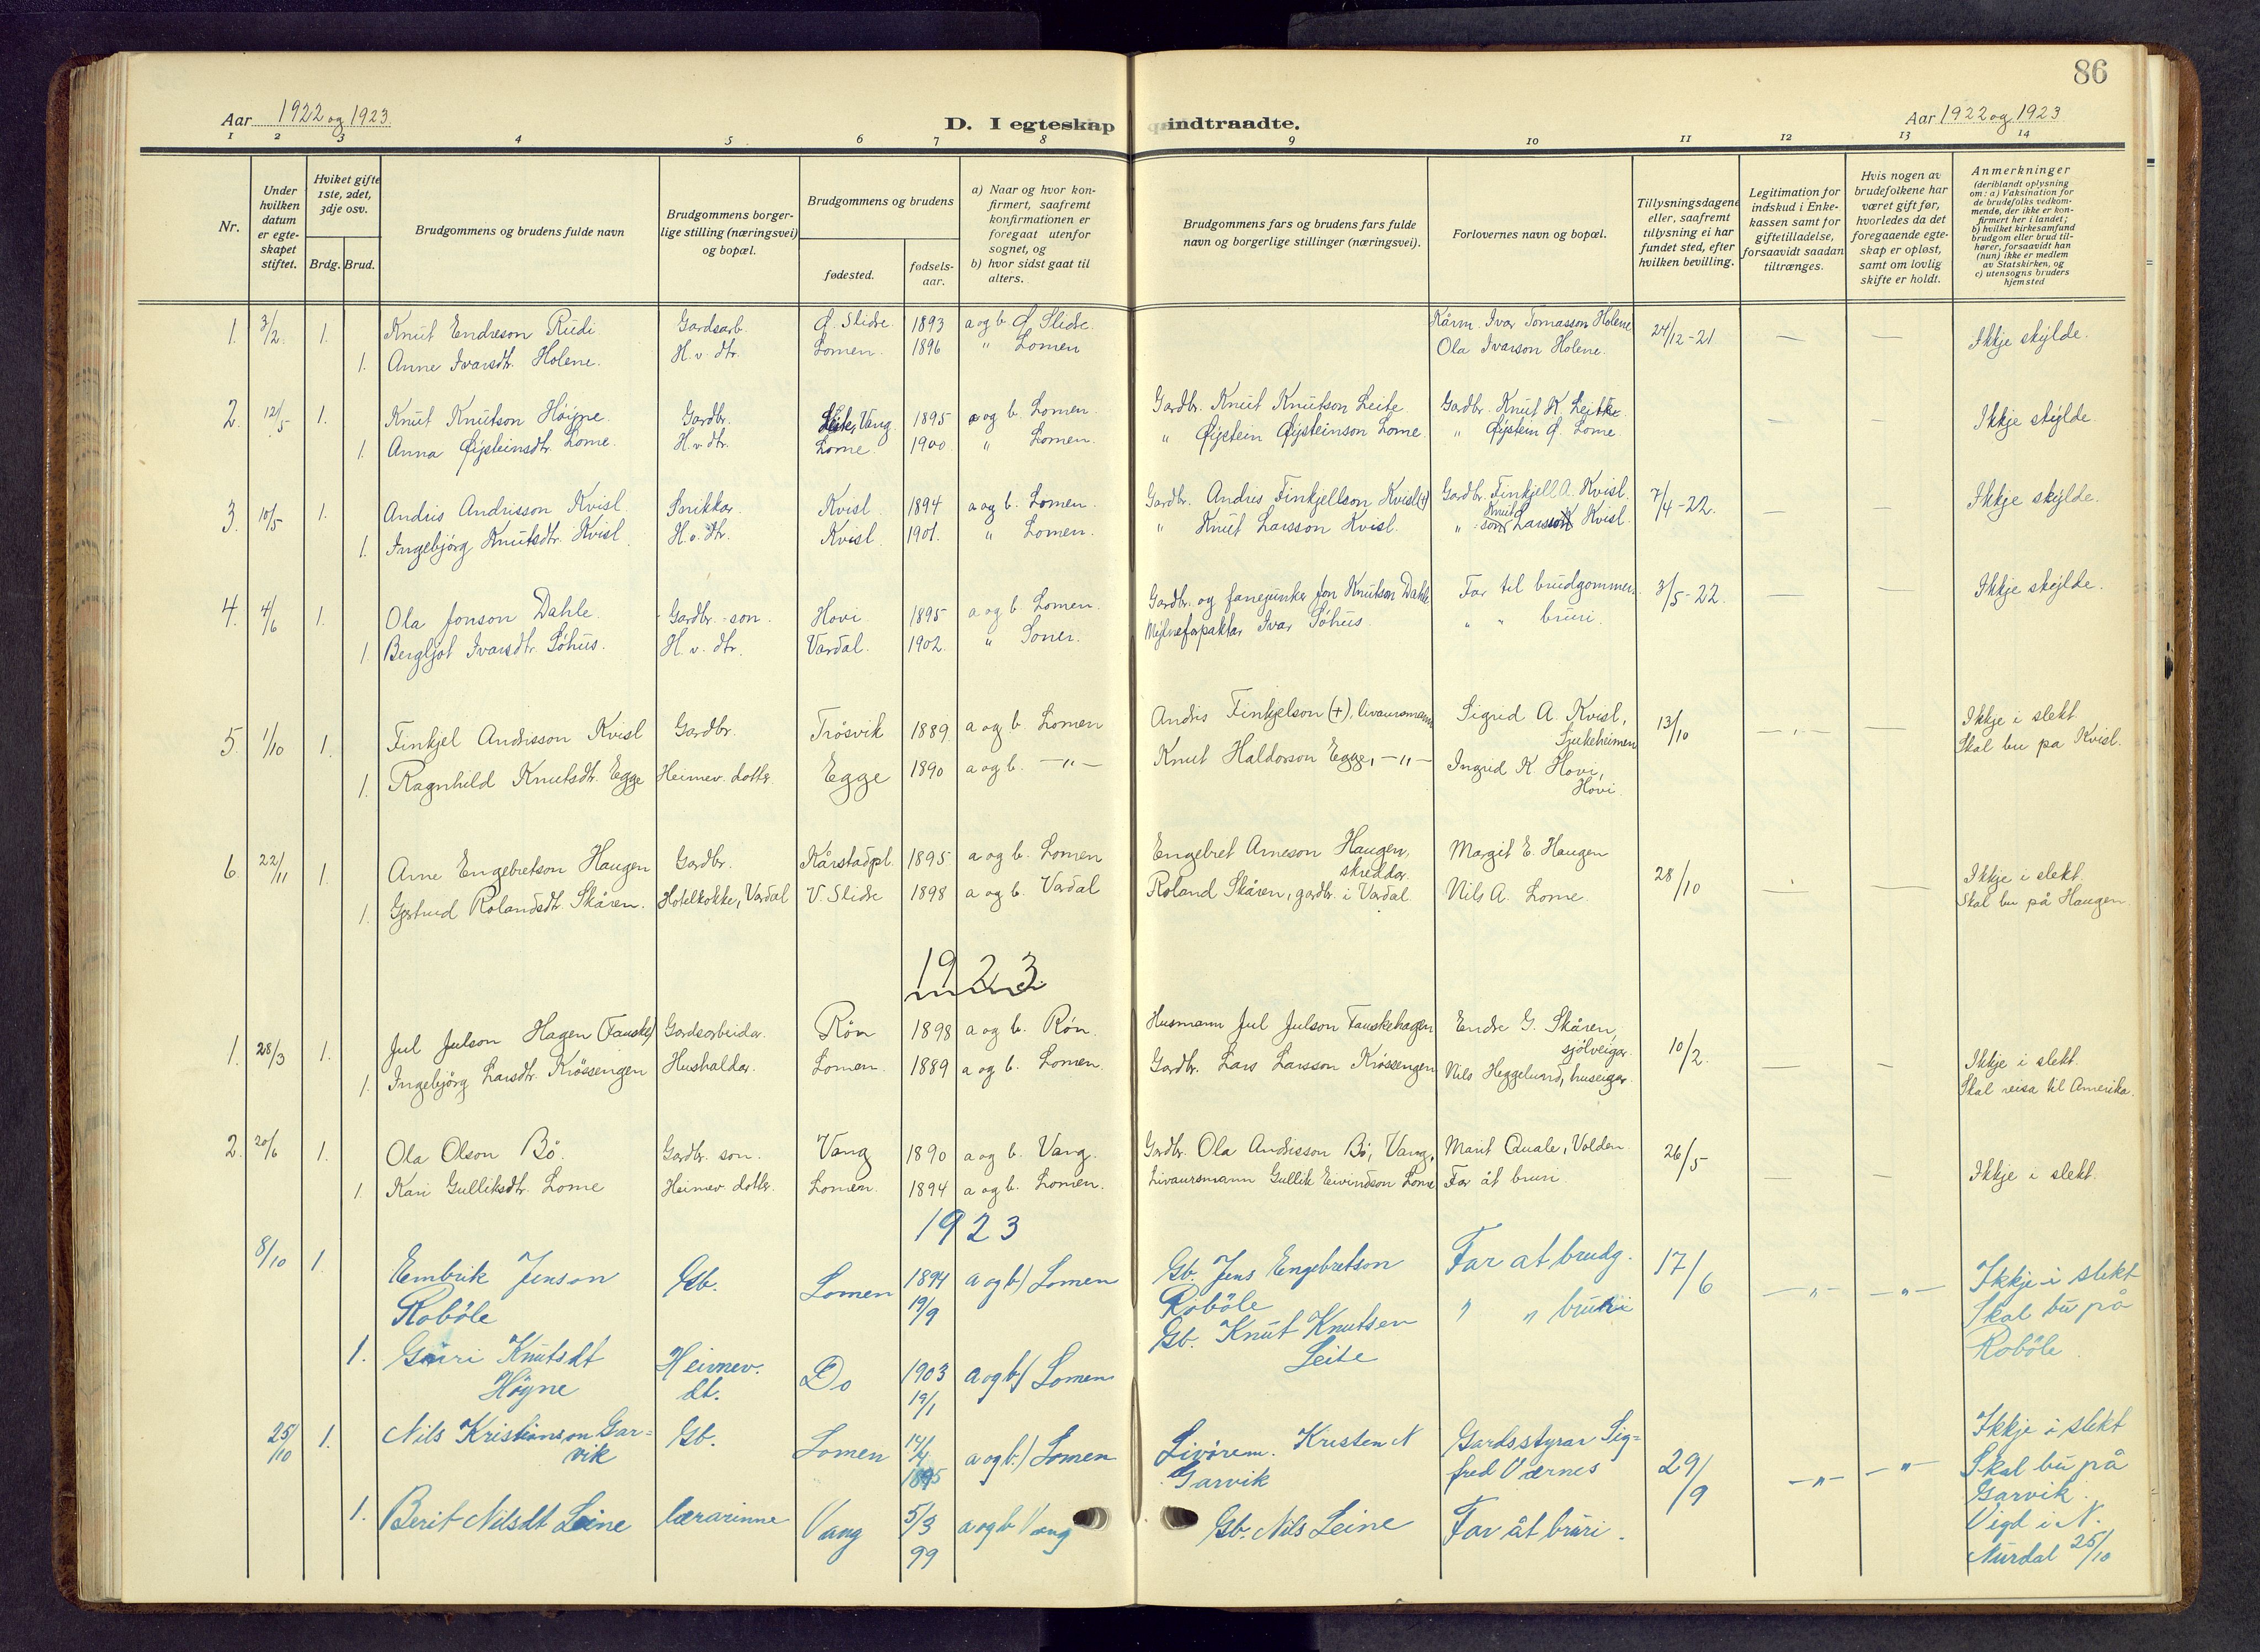 86
Aar 1922 og 1923.
D. I egteskap indtraadte.
Aar 1922 og 1923
1 2 3 4 5 6 7 8 9 10 11 12 13 14
Nr.
Under hvilken datum er egteskapet stiftet.
Hviket gifte 1ste, 2det, 3dje osv.
Brdg. Brud.
Brudgommens og brudens fulde navn
Brudgommens borgerlige stilling (næringsvei) og bopæl.
Brudgommens og brudens
fødested.
fødselsaar.
a) Naar og hvor konfirmert, saafremt konfirmationen er foregaat utenfor sognet, og
b) hvor sidst gaat til alters.
Brudgommens fars og brudens fars fulde navn og borgerlige stillinger (næringsvei).
Forlovernes navn og bopæl.
Tillysningsdagene eller, saafremt tillysning ei har fundet sted, efter hvilken bevilling.
Legitimation for indskud i Enkekassen samt for giftetilladelse, forsaavidt saadan tiltrænges.
Hvis nogen av brudefolkene har været gift før, hvorledes da det foregaaende egteskap er opløst, samt om lovlig skifte er holdt.
Anmerkninger
(deriblandt oplysning om: a) Vaksination for de brudefolks vedkommende, der ikke er konfirmert her i landet; b) hvilket kirkesamfund brudgom eller brud tilhører, forsaavidt han (hun) ikke er medlem av Statskirken, og c) utensogns bruders hjemsted
1. 3/2. 1. Knut Endreson Rudi Gardsarb. Ø. Slidre 1893 a og b. Ø. Slidre. Kårm. Ivar Tomasson Holene 24/12-21 — — Ikkje skylde.
1. Anne Ivarsdtr. Holene. H. v. dtr. Lomen. 1896 " Lomen Ola Ivarson Holene.
2. 12/5 1. Knut Knutson Høigne. Gardbr. Vang 1895 a og b. Lomen. Gardbr. Knut Knutson Leite Gardbr. Knut K. Leite. — — Ikkje skylde
1. Anna Øisteinsdtr. Lome. H. v. dtr. Lome. 1900 " Lomen. " Øistein Øisteinson Lome " Øistein Ø. Lome.
3. 10/5 1. Andris Andrisson Kvisl. Snikkar. Kvisl. 1894 a og b. Lomen. Gardbr. Andris Finkjellson Kvisl (+) Gardbr. Finkjell A. Kvisl. 7/4-22. — — Ikkje skylde.
1. Ingebjörg Knutsdtr. Kvisl H. v. dtr. Kvisl. 1901. " Lomen. " Knut Larsson Kvisl. " Knut Larsson Kvisl.
4. 4/6 1. Ola Jonson Dahle. Gardbr.-son. Hovi 1895 a og b. Lomen. Gardbr. og fanejunker Jon Knutson Dahle Far til brudgommen 3/5-22. — — Ikkje skylde.
1. Bergljot Ivarsdtr. Söhus. H. v. dtr. Vardal. 1902. " Mylneforpaktar Ivar Söhus. " " bruri.
5. 1/10 1. Finkjel Andrisson Kvisl Gardbr. Trösvik 1889 a og b. Lomen Andris Finkjelson (+), livaursmann Sigrid A. Kvisl, Sjukeheimen 13/10 — — Ikkje i slekt. Skal bu på Kvisl.
1. Ragnhild Knutsdtr. Egge Heimev. dotter. Egge 1890 a og b. —"— Knut Haldorson Egge, —"— Ingrid K. Hovi, Hovi.
6. 22/11 1. Arne Engebretson Haugen Gardbr. Kårstadpl. 1895 a og b. Lomen Engebret Arneson Haugen, skreddar. Margit E. Haugen 28/10 — — Ikkje i slekt. Skal bu på Haugen.
1. Gjertrud Rolandsdtr. Skåren. Hotelkokke, Vardal V. Slidre 1898 a og b. Vardal Roland Skåren, gardbr. i Vardal. Nils A. Lome.
1923.
1. 28/3 1. Jul Julson Hagen (Fauske) Gardsarbeidar. Røn 1898 a og b. Røn. Husmann Jul Julson Fauskehagen Endre G. Skåren, sjölveigar. 10/2 — — Ikkje i slekt
1. Ingebjörg Larsdtr. Krössengen Hushaldar. Lomen. 1889 a og b. Lomen. Gardbr. Lars Larsson Krössengen Nils Heggelund, huseigar. Skal reisa til Amerika.
2. 20/6 1. Ola Olson Bö. Gardbr. son. Vang 1890 a og b. Vang. Gardbr. Ola Andrisson Bö, Vang, Marit Quale, Volden. 26/5 — — Ikkje i slekt.
1. Kari Gulliksdtr. Lome Heimev. dotter. Lomen. 1894 a og b. Lomen. Livaursmann Gullik Eivindson Lome Far åt bruri.
1923
8/10 1. Embrik Jenson Gb. Lomen 1894 a og b) Lomen Gb. Jens Engebretson Far at brudg. 17/6 —"— —"— Ikkje i slekt
Robøle 19/9 Robøle " " bruri Skal bu på
Gb. Knut Knutsen Leite Robøle
1. Guri Knutsdt Høgne Heimev. dt. Do 1903 19/1 a og b) Lomen
25/10 1. Nils Kristianson Garvik Gb. Lomen 14/4 1895 a og b.) Lomen Livörem. Kristen N Garvik Gardsstyrar Sigfred Værnes 29/9 —"— —"— Ikkje i slekt
Skal bu på
Garvik.
1. Berit Nilsdt Leine lærarinne Vang 5/3 99 a og b Vang Gb. Nils Leine Far åt bruri. Vigd i N.
Aurdal 25/10